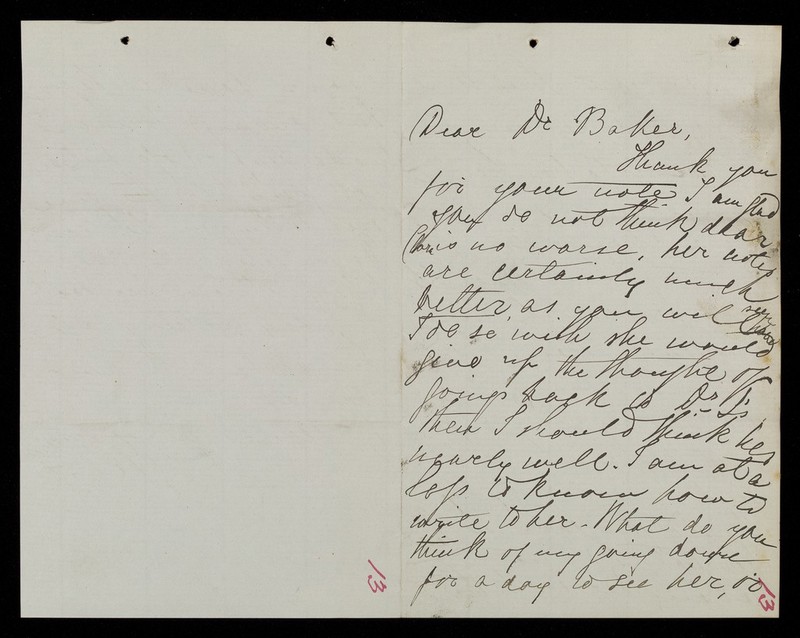 Dear Dr Baker,
Thank you
for your note I am glad
you do not think dear
Clara is no worse, her notes
are certainly much
better, as you will see
I do so wish she would
give up the thought of
going back to Dr
then I should think her
nearly well. I am at a
loss to know how to
write to her. What do you
think of my going down
for a day to see her, or
13
13